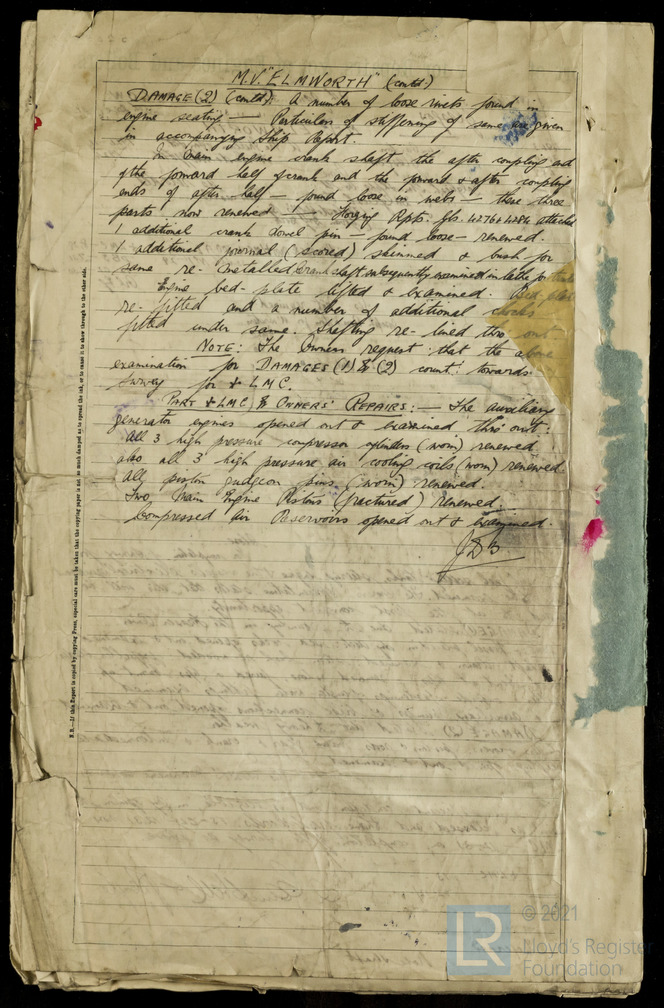 M.V. "ELMWORTH" (contd)
DAMAGE (2) (contd): A number of loose rivets found in
engine seating — Particulars of stiffening of same are given
in accompanying Ship Report.
In main engine crank shaft the after coupling end
of the forward half of crank and the forward & after coupling
ends of after half — found loose in webs — these three
parts now renewed — Forging Rpts. Gls. 4276 & 4284 attached
1 additional crank dowel pin — found loose — renewed.
1 additional journal (scored) skimmed & bush for
same re-metalled Crank shaft subsequently examined in lathe for
Engine bed-plate lifted & examined. Bed plate
re-fitted and a number of additional chocks
fitted under same. Shafting re-lined thro' out
NOTE: The Owners request that the above
examination for DAMAGES (1) & (2) count towards
Survey for LMC.
PART LMC & OWNERS' REPAIRS: — The auxiliary
generator engines opened out & examined thro' out:
All 3 high pressure compressor cylinders (worn) renewed
also all 3 high pressure air cooling coils (worn) renewed
All piston gudgeon pins (worn) renewed.
Two Main Engine Pistons (fractured) renewed.
Compressed Air Reservoirs opened out & examined.
N.B.—If this Report is copied by copying Press, especial care must be taken that the copying paper is not so much damped as to spread the ink, or to cause it to show through to the other side.
LR
© 2021
Lloyd's Register
Foundation